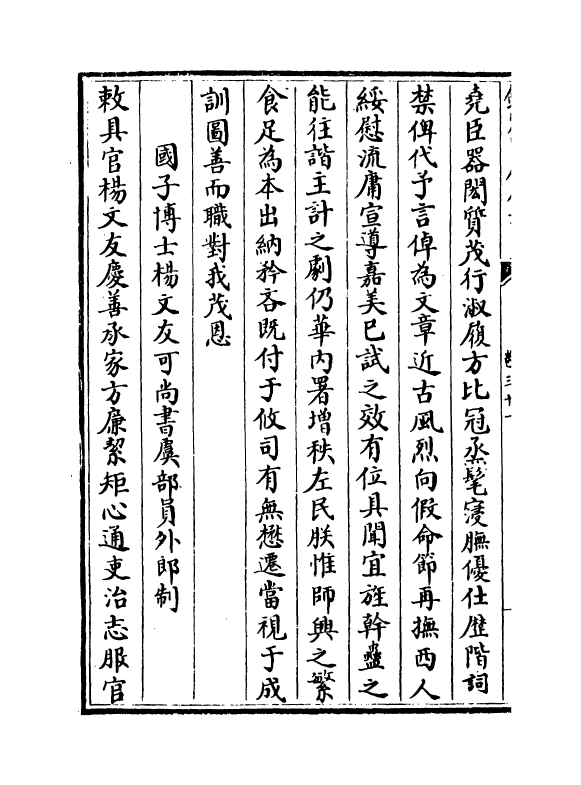 堯臣器閎質茂行淑履方比冠烝髦寖膴優仕歴階詞
禁俾代予言倬為文章近古風烈向假命節再撫西人
綏慰流庸宣導嘉美已試之效有位具聞宜旌幹蠱之
能往諧主計之劇仍華内署增秩左民朕惟師興之繁
食足為本出納矜吝既付于攸司有無懋遷當視于成
訓圖善而職對我茂恩
國子博士楊文友可尚書虞部員外郎制
敕具官楊文友慶善承家方廉絜矩心通吏治志服官
卷三十一